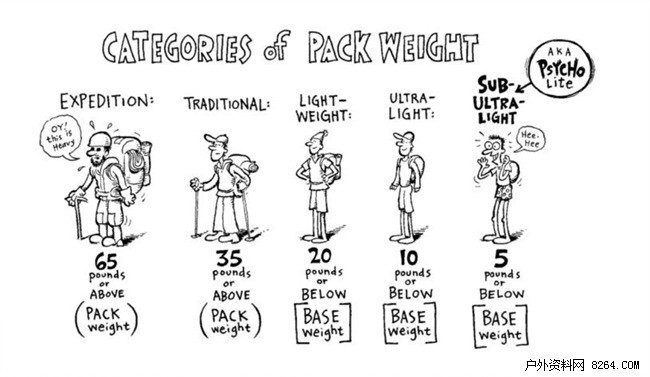 CATEGORIES of PACK WEIGHT
AKA
PSYCHO
Lite
EXPEDITION:
TRADITIONAL:
LIGHT-
WEIGHT:
ULTRA-
LIGHT:
SUB-
ULTRA-
LIGHT
OY!
this is
Heavy
Hee-
Hee
65
pounds
or
ABOVE
(PACK
weight)
35
pounds
or
ABOVE
(PACK
weight)
20
pounds
or
BELOW
[BASE
weight]
10
pounds
or
BELOW
[BASE
weight]
5
pounds
or
BELOW
[BASE
weight]
户外资料网 8264.com